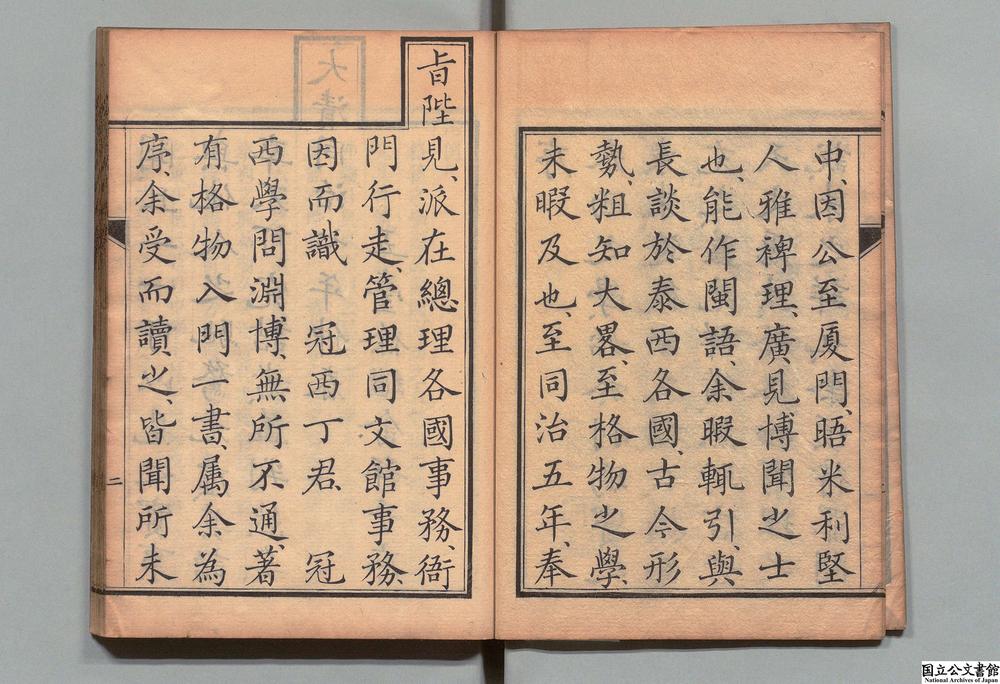 中、因公至厦門、晤米利堅
人雅裨理、廣見博聞之士
也、能作閩語、余暇輒引、與
長談於泰西各國、古今形
勢、粗知大畧、至格物之學、
未暇及也、至同治五年、奉
旨陛見、派在總理各國事務、衙
門行走、管理同文館事務、
因而識 冠西丁君、 冠
西學問淵博、無所不通、著
有格物入門一書、属余為
序、余受而讀之、皆聞所未
二
大清
国立公文書館
National Archives of Japan